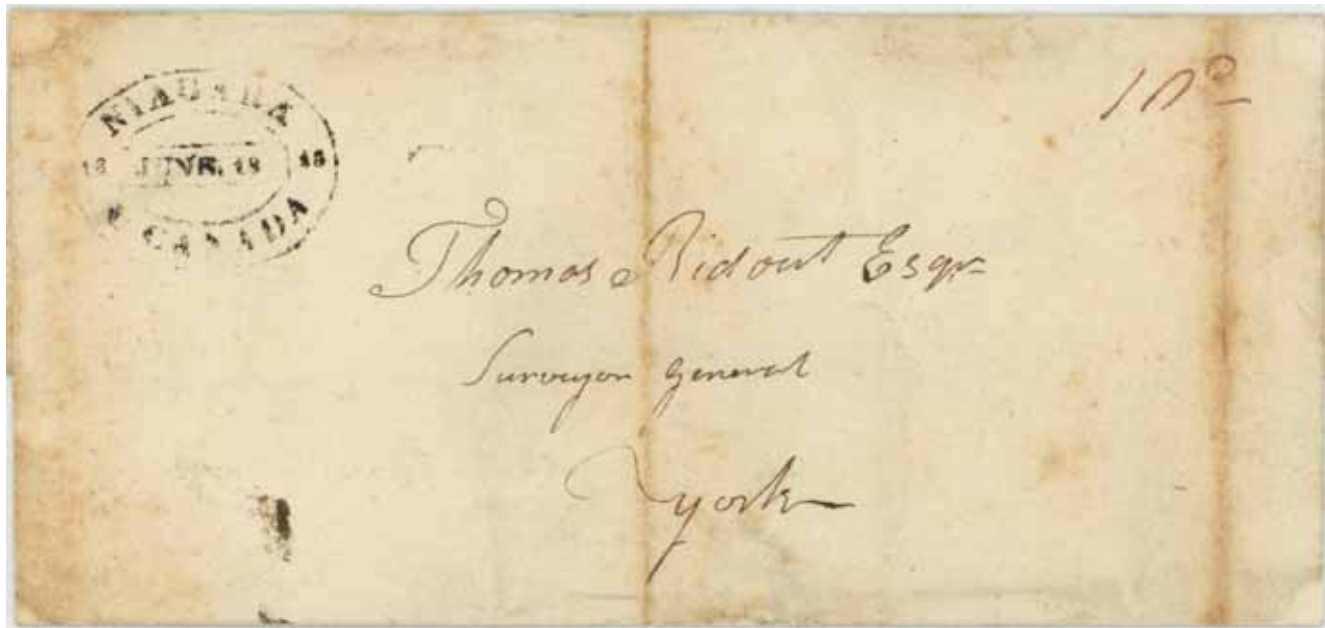 NIAGARA
18 JUNE. 18 18
CANADA
Thomas Ridout Esqr
Surveyor General
York